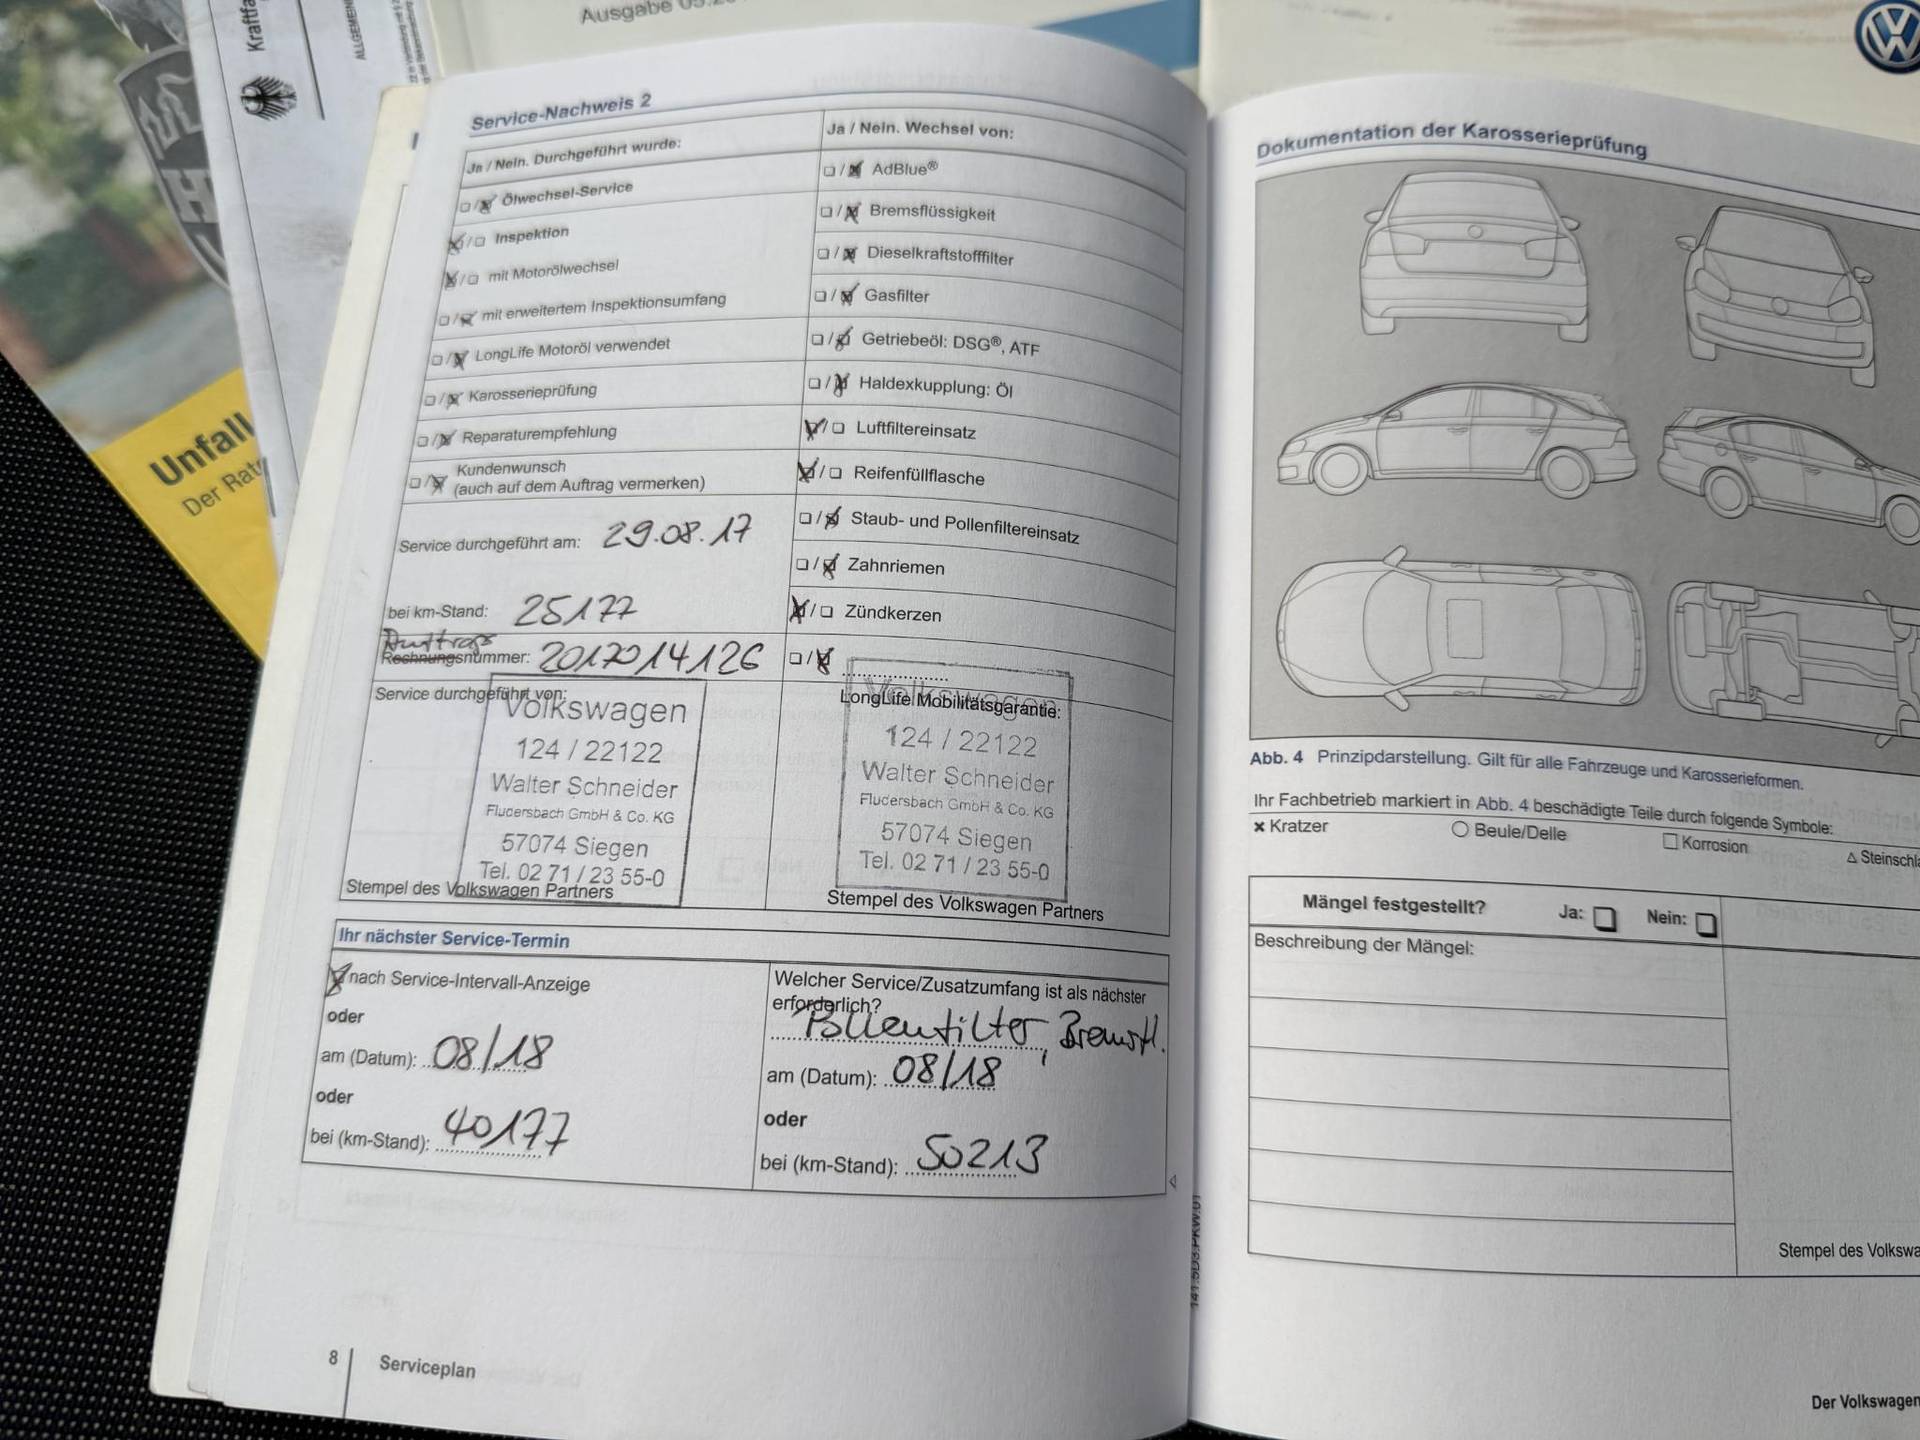 Ausgabe
Kraftfa
ALLGEMEIN
Unfall
Der Rat
Service-Nachweis 2
Ja / Nein. Durchgeführt wurde:
Ölwechsel-Service
Inspektion
mit Motorölwechsel
mit erweitertem Inspektionsumfang
LongLife Motoröl verwendet
Karosserieprüfung
Reparaturempfehlung
Kundenwunsch
(auch auf dem Auftrag vermerken)
Service durchgeführt am: 29.08.17
bei km-Stand: 25177
Auftrags
Rechnungsnummer: 2017014126
Service durchgeführt von:
Volkswagen
124 / 22122
Walter Schneider
Fludersbach GmbH & Co. KG
57074 Siegen
Tel. 02 71 / 23 55-0
Stempel des Volkswagen Partners
Ja / Nein. Wechsel von:
AdBlue®
Bremsflüssigkeit
Dieselkraftstofffilter
Gasfilter
Getriebeöl: DSG®, ATF
Haldexkupplung: Öl
Luftfiltereinsatz
Reifenfüllflasche
Staub- und Pollenfiltereinsatz
Zahnriemen
Zündkerzen
LongLife Mobilitätsgarantie:
Volkswagen
124 / 22122
Walter Schneider
Fludersbach GmbH & Co. KG
57074 Siegen
Tel. 02 71 / 23 55-0
Stempel des Volkswagen Partners
Ihr nächster Service-Termin
nach Service-Intervall-Anzeige
oder
am (Datum): 08/18
oder
bei (km-Stand): 40177
Welcher Service/Zusatzumfang ist als nächster
erforderlich?
Pollenfilter, Bremsfl.
am (Datum): 08/18
oder
bei (km-Stand): 50213
8 Serviceplan
VW
Dokumentation der Karosserieprüfung
Abb. 4 Prinzipdarstellung. Gilt für alle Fahrzeuge und Karosserieformen.
Ihr Fachbetrieb markiert in Abb. 4 beschädigte Teile durch folgende Symbole:
× Kratzer ○ Beule/Delle □ Korrosion △ Steinschla
Mängel festgestellt? Ja: Nein:
Beschreibung der Mängel:
Stempel des Volkswa
Der Volkswagen